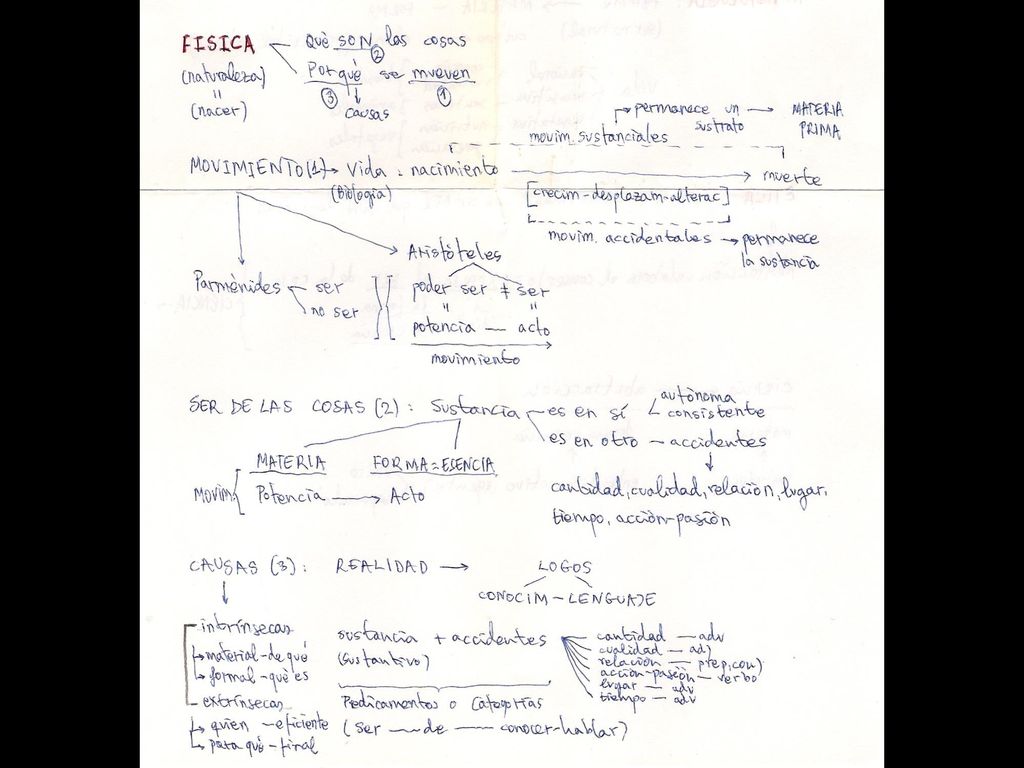 FISICA Qué SON las cosas
(naturaleza) 2
Porqué se mueven
"
(nacer) 3 causas 1
permanece un sustrato → MATERIA PRIMA
movim. sustanciales
MOVIMIENTO(1) → Vida: nacimiento → muerte
(Biología) [crecim-desplazam-alterac]
movim. accidentales → permanece la sustancia
Aristóteles
Parménides ser poder ser ≠ ser
no ser " "
potencia — acto
movimiento
SER DE LAS COSAS (2): Sustancia es en sí autónoma
consistente
es en otro — accidentes
MATERIA FORMA = ESENCIA
Movim Potencia → Acto
cantidad, cualidad, relación, lugar,
tiempo, acción-pasión
CAUSAS (3): REALIDAD → LOGOS
CONOCIM - LENGUAJE
intrínsecas sustancia + accidentes cantidad — adv
↳ material - de qué (sustantivo) cualidad — adj
↳ formal - qué es relación — prep, conj
acción-pasión — verbo
lugar — adv
tiempo — adv
extrínsecas Predicamentos o Categorías
↳ quien — eficiente (ser — de — conocer-hablar)
↳ para qué - final